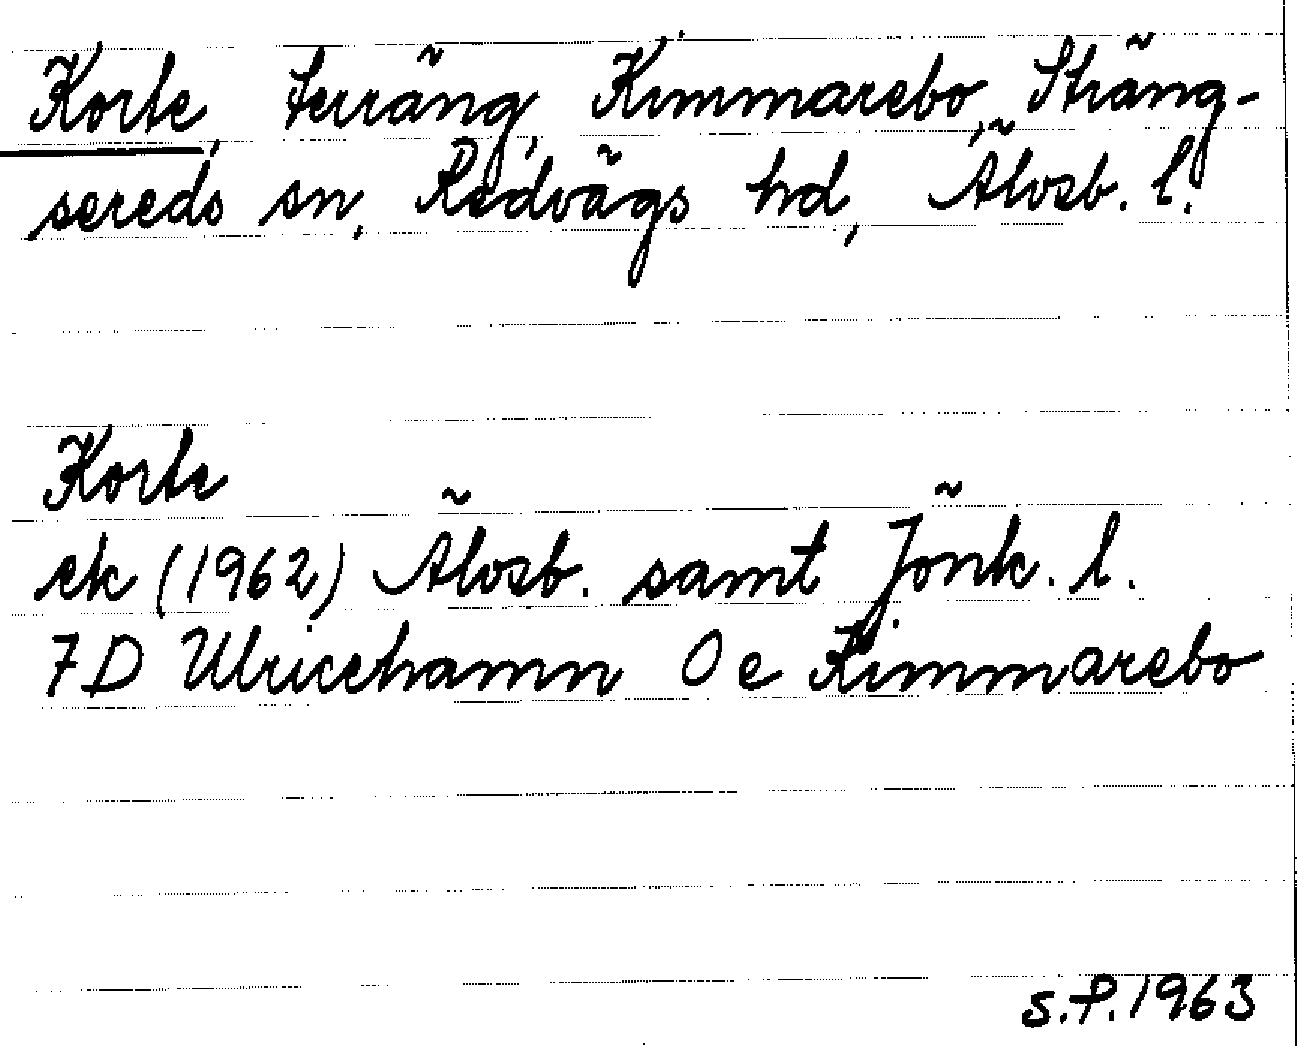 Korte, terräng, Kimmarebo, Sträng-
sereds sn, Redvägs hd, Älvsb. l.
Korte
ek (1962) Älvsb. samt Jönk. l.
7D Ulricehamn 0e Kimmarebo
S.P. 1963